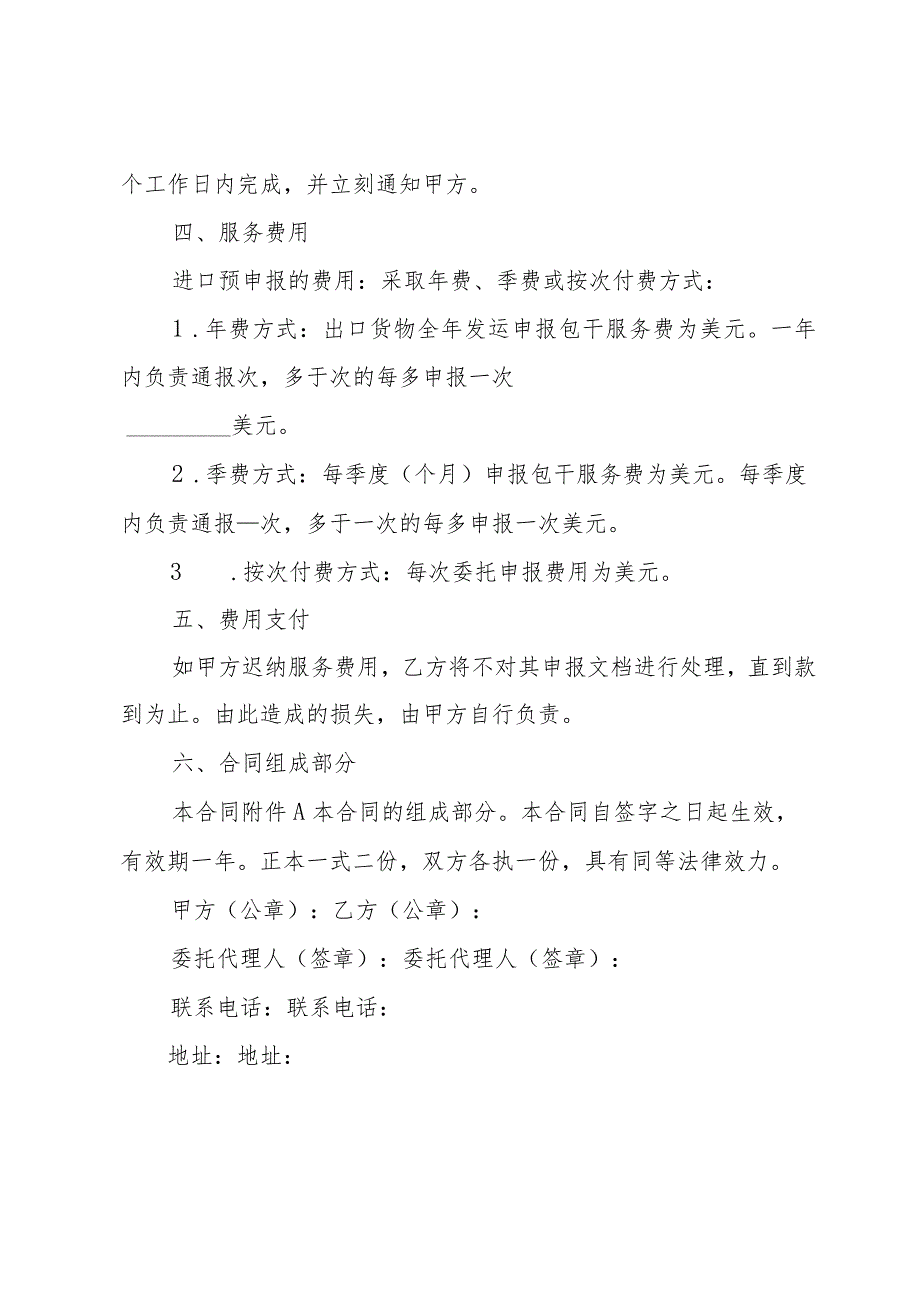 个工作日内完成，并立刻通知甲方。
四、服务费用
进口预申报的费用：采取年费、季费或按次付费方式：
1.年费方式：出口货物全年发运申报包干服务费为美元。一年
内负责通报次，多于次的每多申报一次
_________美元。
2.季费方式：每季度（个月）申报包干服务费为美元。每季度
内负责通报—次，多于一次的每多申报一次美元。
3 .按次付费方式：每次委托申报费用为美元。
五、费用支付
如甲方迟纳服务费用，乙方将不对其申报文档进行处理，直到款
到为止。由此造成的损失，由甲方自行负责。
六、合同组成部分
本合同附件A本合同的组成部分。本合同自签字之日起生效，
有效期一年。正本一式二份，双方各执一份，具有同等法律效力。
甲方（公章）：乙方（公章）：
委托代理人（签章）：委托代理人（签章）：
联系电话：联系电话：
地址：地址：